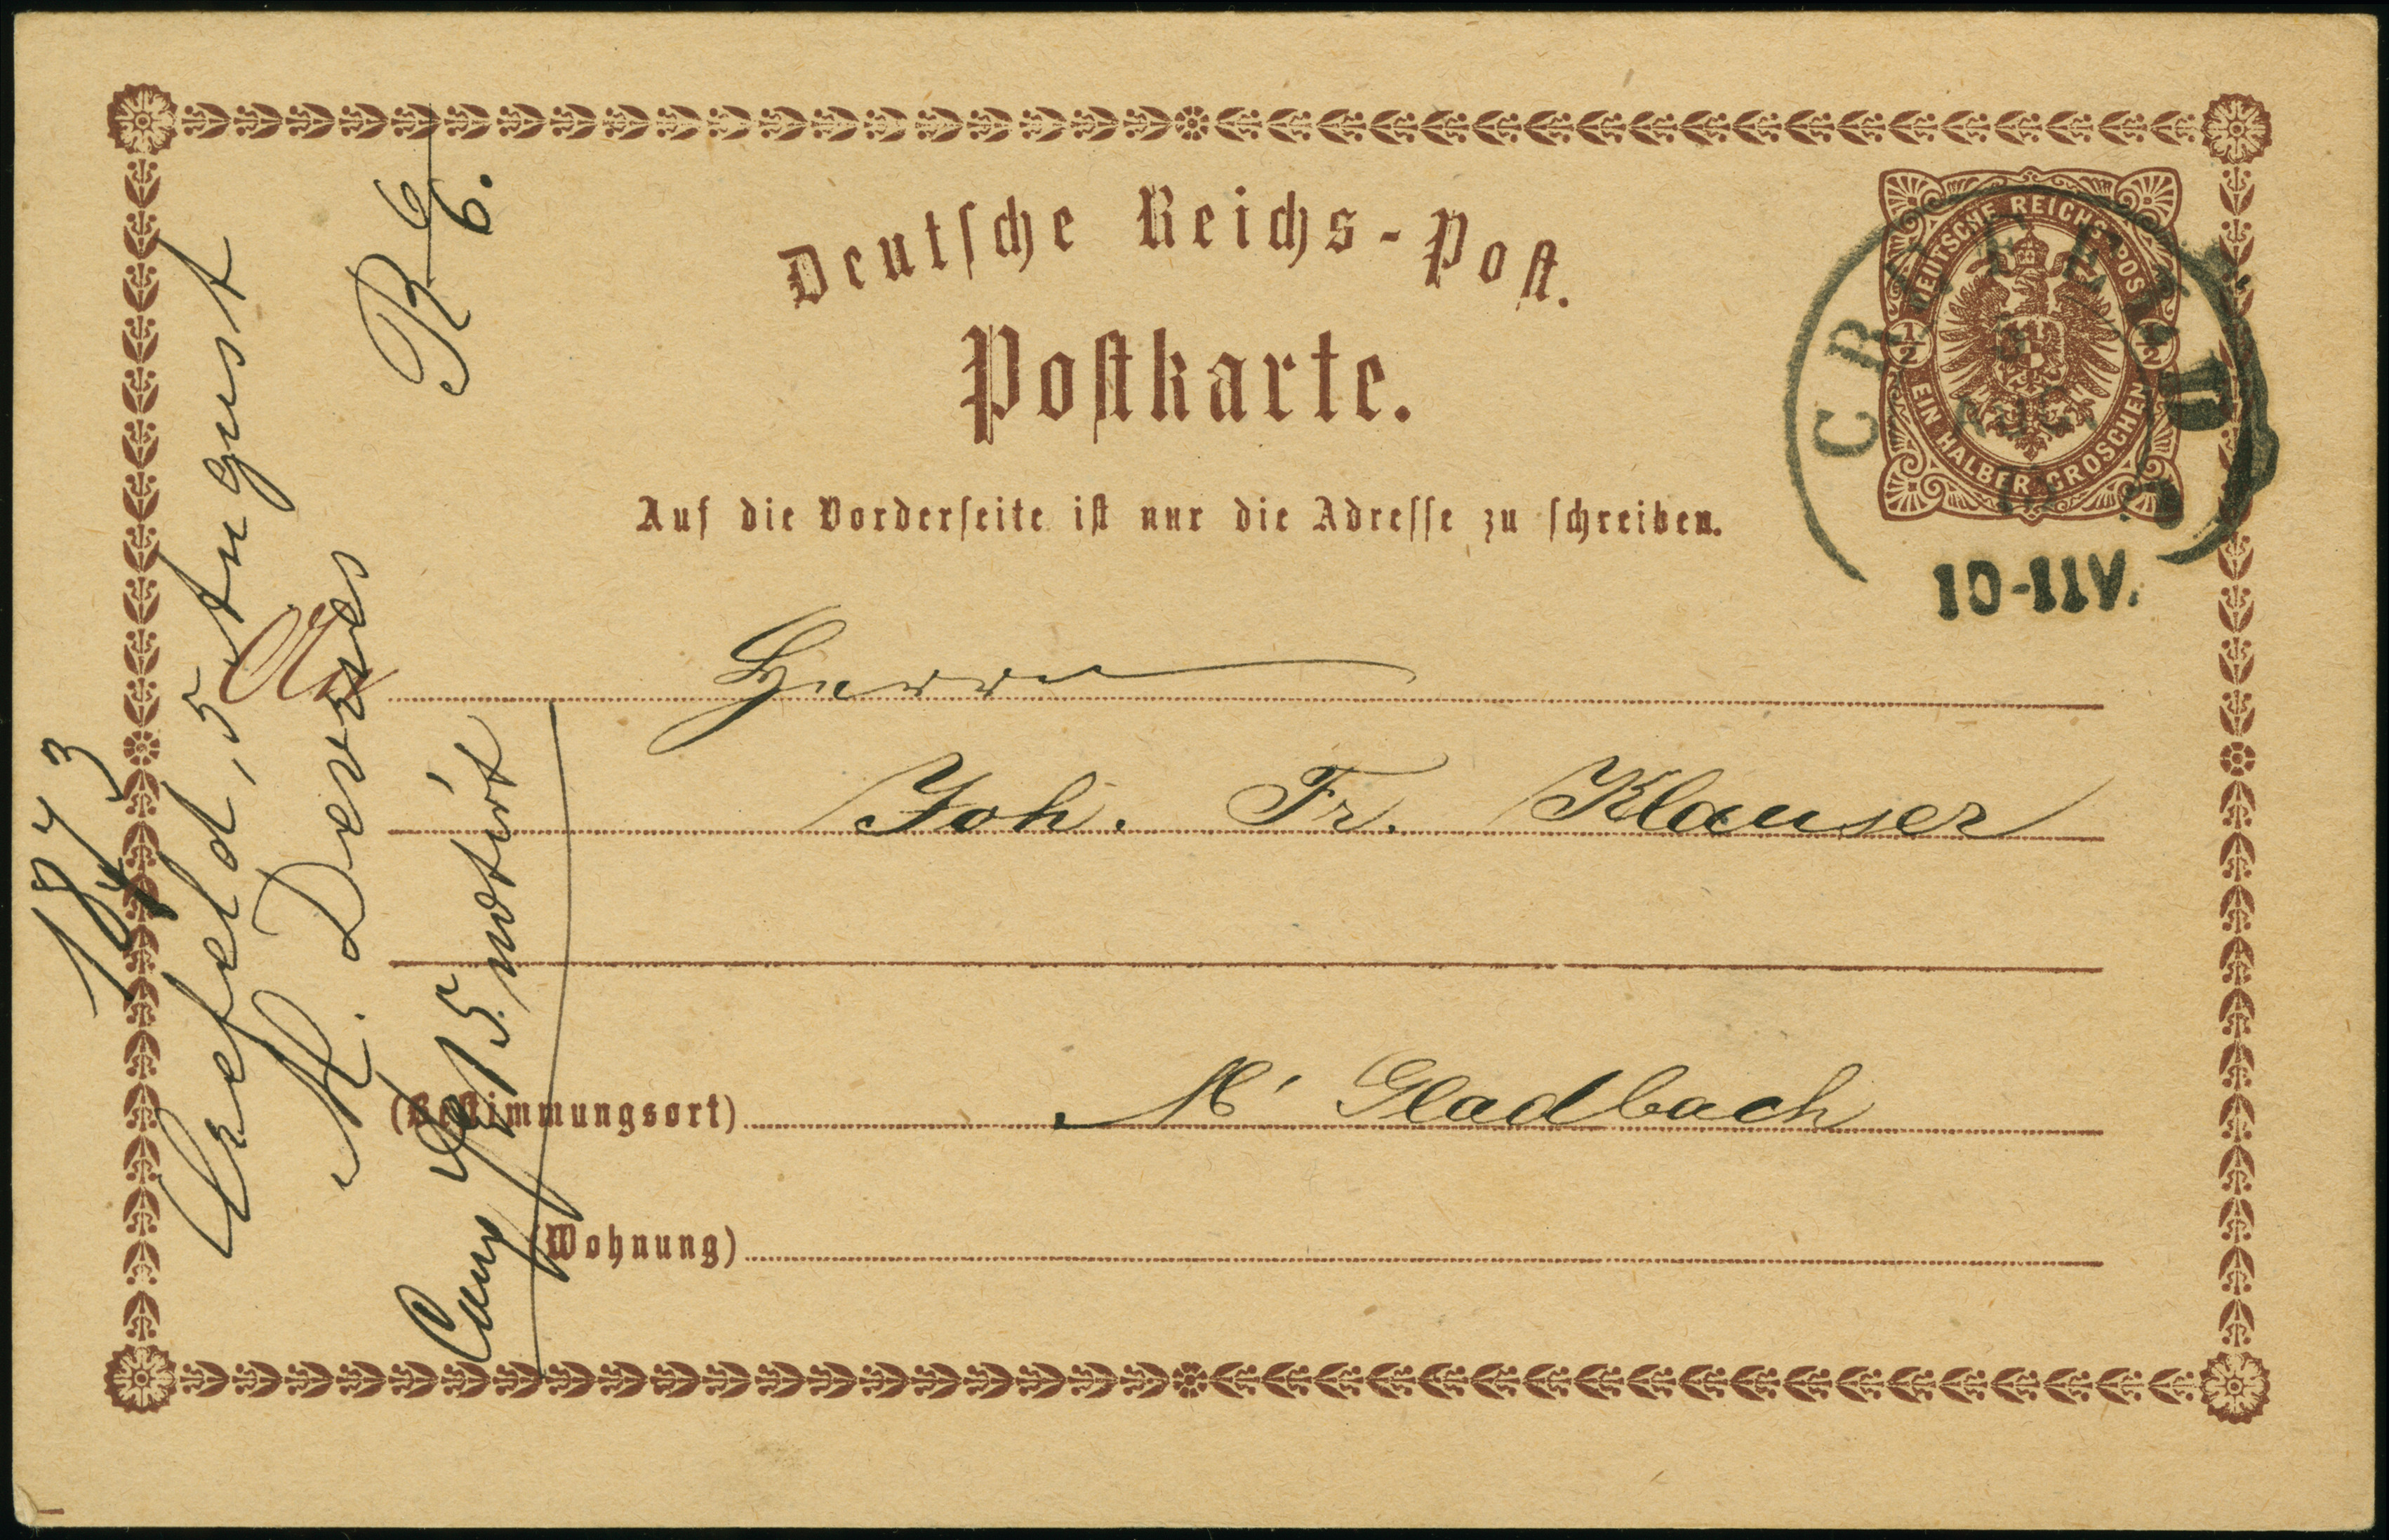 Deutsche Reichs-Post.
Postkarte.
Auf die Vorderseite ist nur die Adresse zu schreiben.
DEUTSCHE REICHSPOST
1/2 1/2
EIN HALBER GROSCHEN
CREFELD
5
AUG
10-11V.
An Herrn
Joh. Fr. Klauser
(Bestimmungsort) M' Gladbach
(Wohnung)
1873
Crefeld, 5 August
M. Deussen
R 6/6.